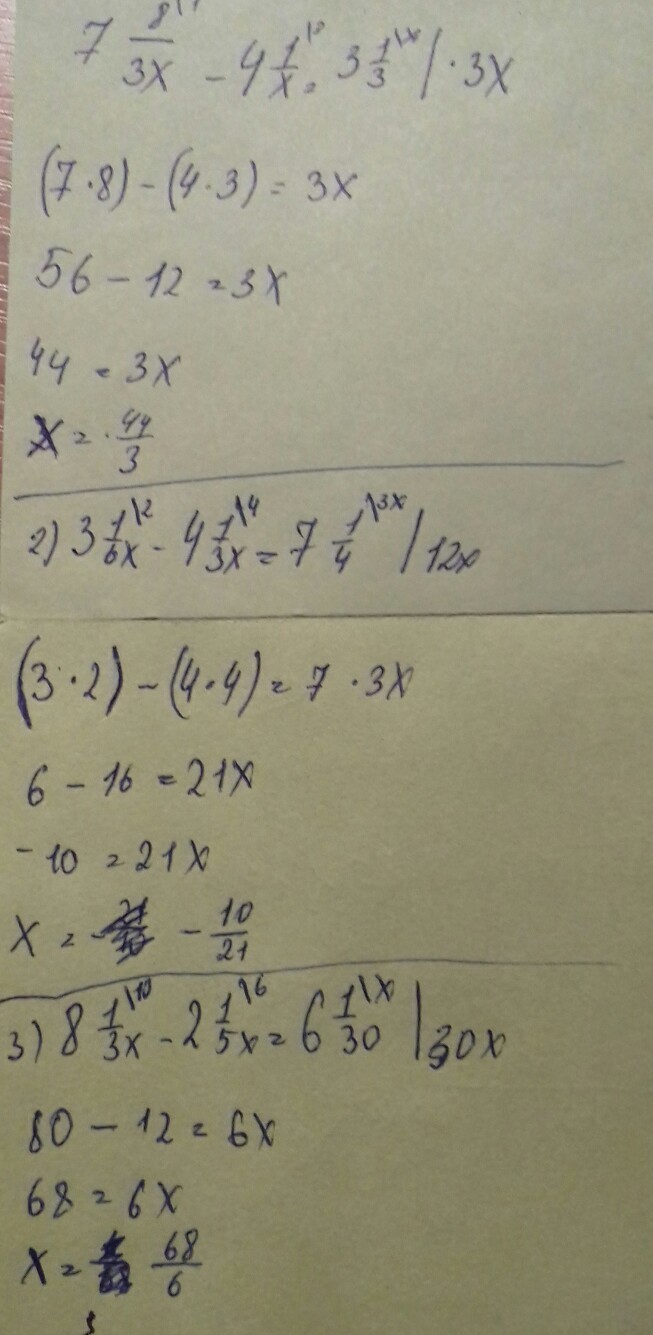 7 8/3x - 4 1/x = 3 1/3 | · 3x
(7 · 8) - (4 · 3) = 3x
56 - 12 = 3x
44 = 3x
x = 44/3
2) 3 1\2/6x - 4 1\4/3x = 7 1\3x/4 | 12x
(3 · 2) - (4 · 4) = 7 · 3x
6 - 16 = 21x
-10 = 21x
x = - 10/21
3) 8 1\10/3x - 2 1\6/5x = 6 1\x/30 | 30x
80 - 12 = 6x
68 = 6x
x = 68/6